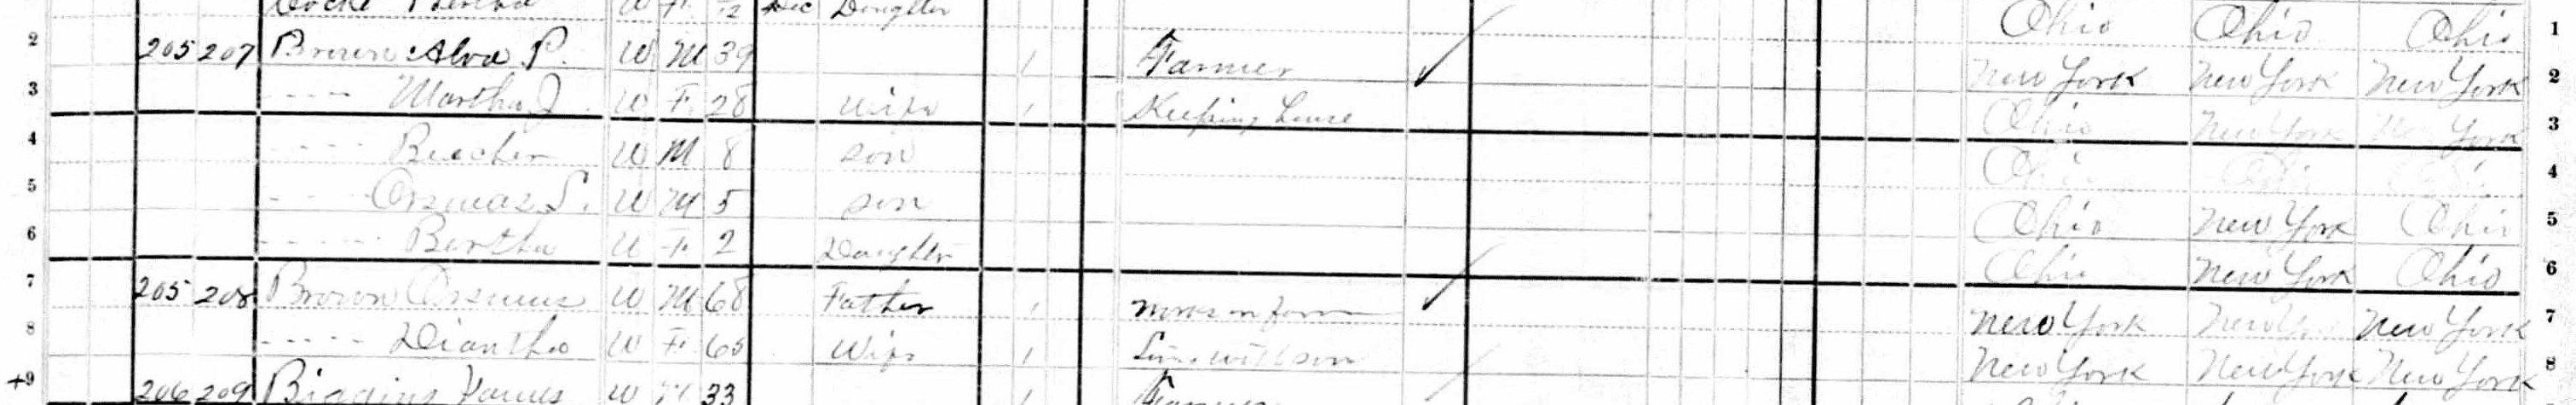 Bertha W F. 5/12 Dec Daughter Ohio Ohio Ohio 1
2 205 207 Brown Alva P. W M 39 1 Farmer New York New York New York 2
3 - - - - Martha J. W F. 28 Wife 1 Keeping house Ohio New York New York 3
4 - - - - Beecher W M 8 son Ohio 4
5 - - - W M 5 son Ohio New York Ohio 5
6 - - - - - Bertha W F. 2 Daughter Ohio New York Ohio 6
7 205 208 Brown W M 68 Father 1 works on farm New York New York New York 7
8 - - - - - Diantha W F. 65 Wife 1 New York New York New York 8
+9 206 209 Biggins James W M 33 1 Farmer